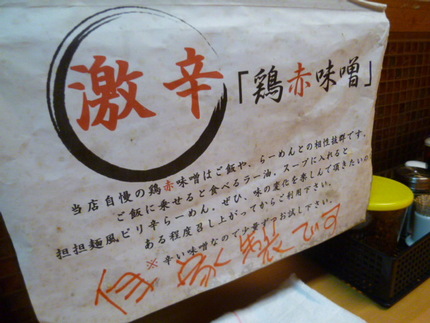 激辛「鶏赤味噌」
当店自慢の鶏赤味噌はご飯や、らーめんとの相性抜群です。
ご飯に乗せると食べるラー油、スープに入れると
担担麺風ピリ辛らーめん、ぜひ、味の変化を楽しんで頂きたいの
ある程度召し上がってからご利用下さい。
※辛い味噌なので少量ずつお試し下さい。
製です